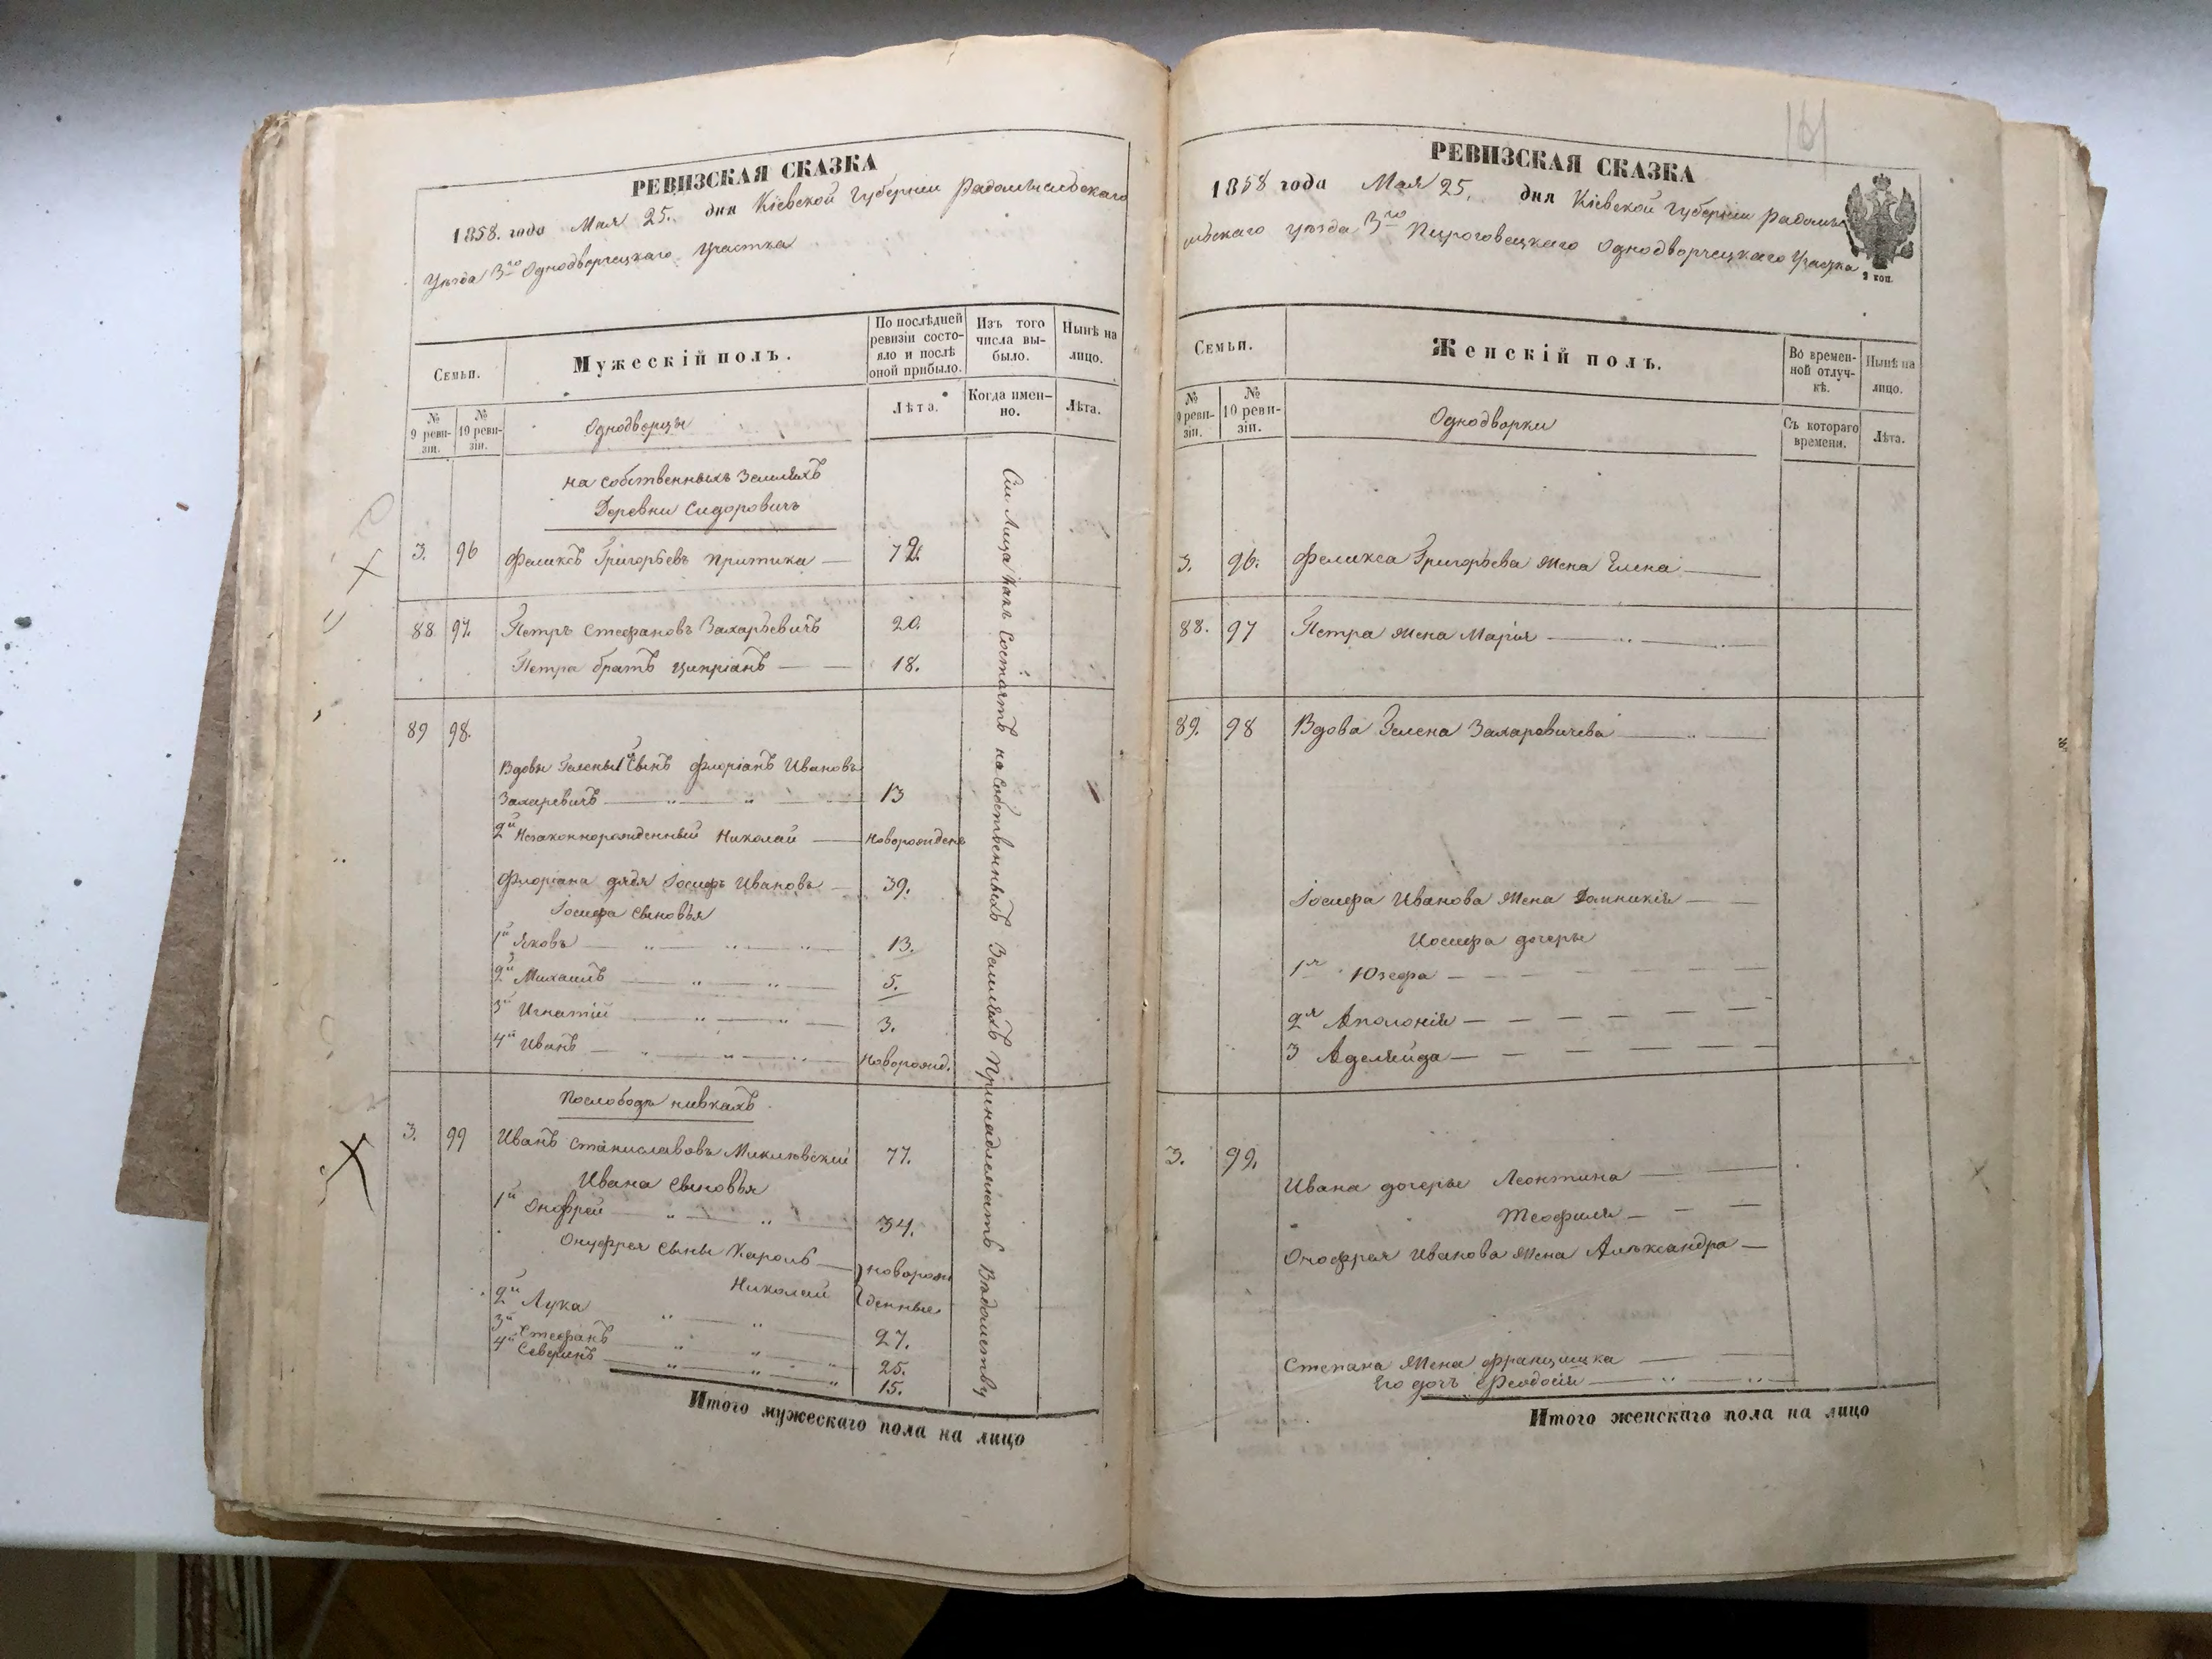 РЕВИЗСКАЯ СКАЗКА
1858. года Мая 25. дня Кіевской Губерніи Радомысльскаго
Уѣзда 3го Однодворческаго Участка
Семьи.
Мужескій полъ.
По послѣдней
ревизіи состо-
яло и послѣ
оной прибыло.
Изъ того
числа вы-
было.
Нынѣ на
лицо.
№
9 реви-
зіи.
№
10 реви-
зіи.
Однодворцы
Лѣта.
Когда имен-
но.
Лѣта.
на собственныхъ Земляхъ
Деревни Сидоровичъ
3. 96 Феликсъ Григорьевъ Притика — 72.
88. 97. Петръ Стефановъ Захарьевичъ 20.
Петра братъ Ципріанъ — — 18.
89 98.
Вдовы Гелены 1й Сынъ Флоріанъ Ивановъ
Захаревичъ — „ — „ — 13
2й Незаконнорожденный Николай — Новорожденъ
Флоріана дядя Іосифъ Ивановъ — 39.
Іосифа сыновья
1й Яковъ — „ — „ — „ — 13.
2й Михаилъ — „ — „ — 5.
3й Игнатій — „ — „ — 3.
4й Иванъ — „ — „ — „ — Новорожд.
Послободѣ нивкахъ
3. 99 Иванъ Станиславовъ Миклювскій 77.
Ивана Сыновья
1й Онофрей — „ — „ — 34.
Онуфрея Сыны Кароль — } новорож
Николай денные
2й Лука „ „ — 27.
3й Стефанъ — „ — „ — „ 25.
4й Северинъ — „ — „ — „ 15.
Сіи Лица какъ Состоятъ на Собственныхъ Земляхъ Принадлежатъ Вѣдомству
Итого мужескаго пола на лицо
161
РЕВИЗСКАЯ СКАЗКА
1858 года Мая 25. дня Кіевской Губерніи Радомы
сльскаго уѣзда 3го Пироговецкаго Однодворческаго Участка
2 коп.
Семьи.
Женскій полъ.
Во времен-
ной отлуч-
кѣ.
Нынѣ на
лицо.
№
9 реви-
зіи.
№
10 реви-
зіи.
Однодворки
Съ котораго
времени.
Лѣта.
3. 96. Феликса Григорьева Жена Елена —
88. 97 Петра Жена Марія — „ —
89. 98 Вдова Гелена Захаревичева — „ —
Іосифа Иванова Жена Домникія — —
Иосифа дочери
1я Юзефа — — — — — —
2я Аполонія — — — — — —
3 Аделяида — — — — — —
3. 99. Ивана дочери Леонтина — —
Теофиля — — —
Онофрея Иванова Жена Александра —
Степана Жена Францишка — —
Его дочь Феодосія — „ — „ —
Итого женскаго пола на лицо